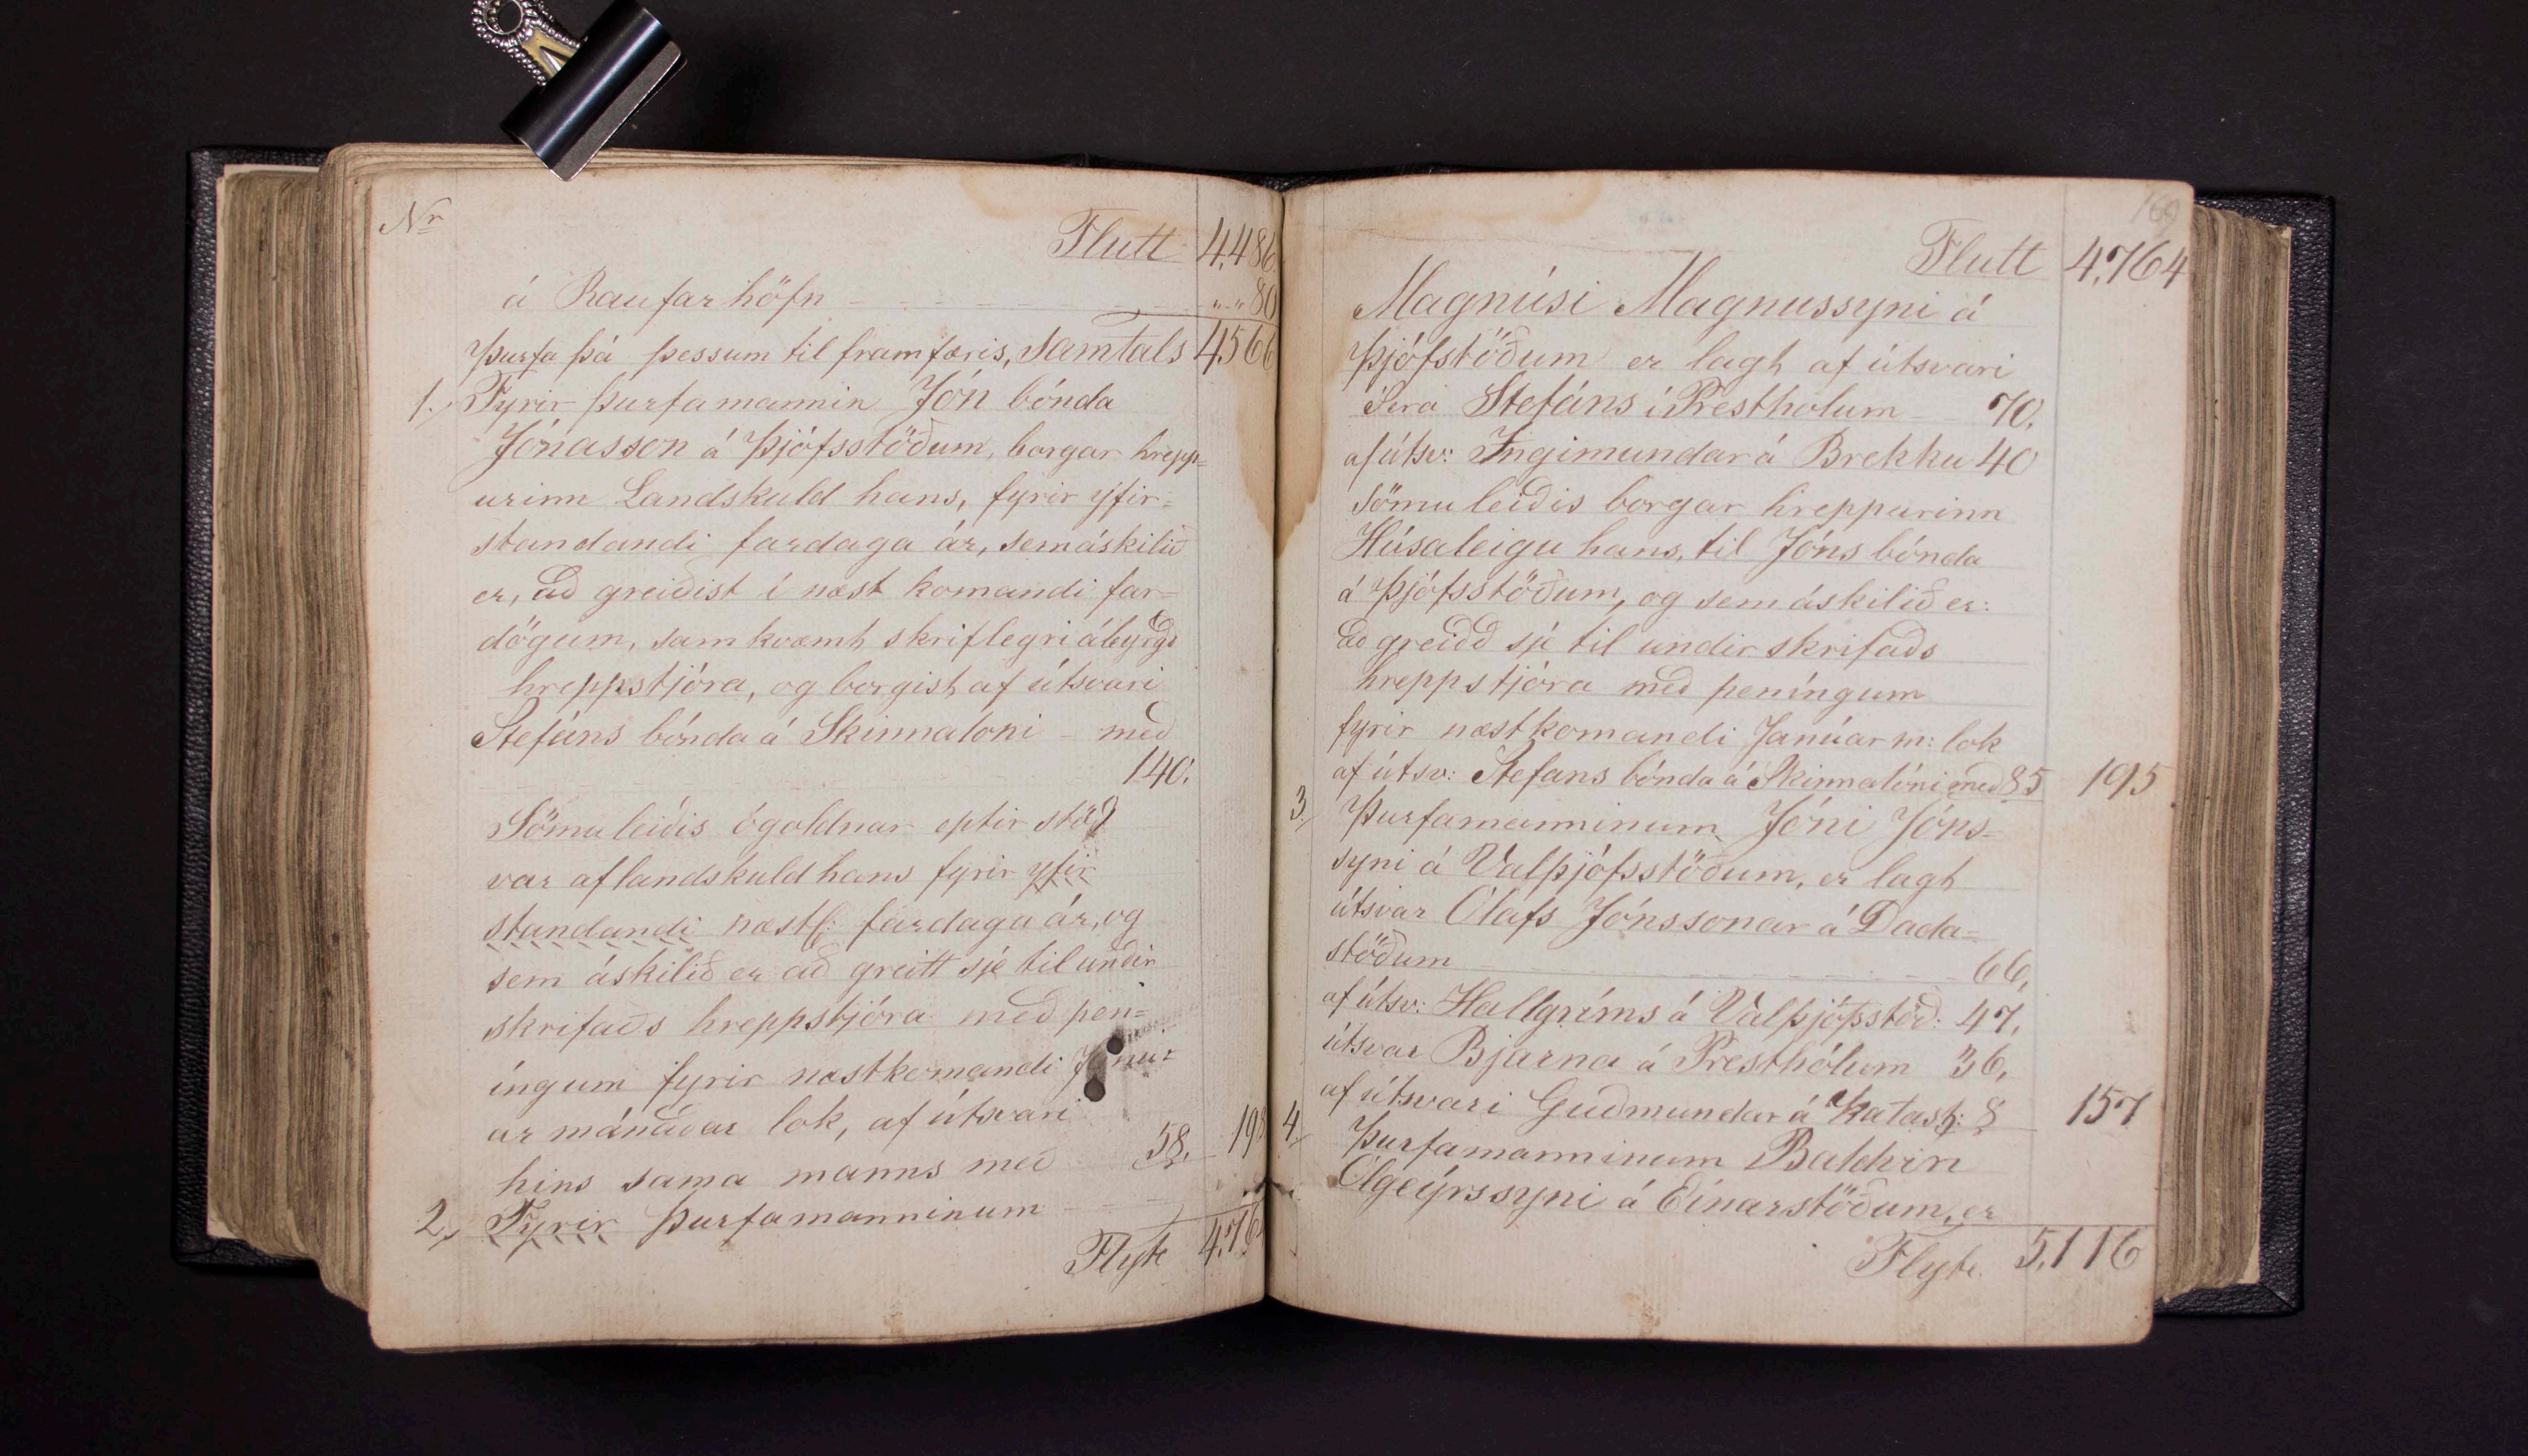 Nr
Flutt 4,486
á Raufarhöfn " " 80
Þurfa þá þessum til framfæris, Samtals 4566
1. Fyrir þurfamannin Jón bónda
Jónasson á Þjófsstöðum, borgar hrepp=
urinn Landskuld hans, fyrir yfir=
standandi fardaga ár, sem áskilið
er, að greiðist í næst komandi far=
dögum, samkvæmt skriflegri ábyrgð
hreppstjóra, og borgist af útsvari
Stefáns bónda á Skinnaloni – með
140.
Sömuleiðis ógoldnar eptir stöð
var af landskuld hans fyrir yfir
standandi næstl: fardaga ár, og
sem áskilið er að greitt sje til undir
skrifaðs hreppstjóra með pen=
íngum fyrir næstkomandi Janu=
ar mánaðar lok, af útsvari
hins sama manns með 58. 198
2, Fyrir Þurfamanninum
Flyt 4.764
169
Flutt 4,764
Magnúsi Magnussyni á
Þjófstöðum er lagt af útsvari
Sera Stefáns í Prestholum 70.
af útsv: Ingimundar á Brekku 40
Sömuleiðis borgar hreppurinn
Húsaleigu hans, til Jóns bónda
á Þjófsstöðum, og sem áskilið er:
að greidd sje til undirskrifaðs
hreppstjóra með peníngum
fyrir næstkomandi Janúar m: lok
af útsv: Stefans bónda á Skinnalóni með 85 195
3. Þurfamanninum Jóni Jóns=
syni á Valþjófsstöðum, er lagt
útsvar Ólafs Jónssonar á Dada=
stöðum 66,
af útsv: Hallgríms á Valþjófsstöð: 47,
útsvar Bjarna á Presthólum 36,
af útsvari Guðmundar á Katast: 8 157
4. Þurfamanninum Baldvin
Olgeýrssyni á Einarstöðum, er
Flyt. 5,116